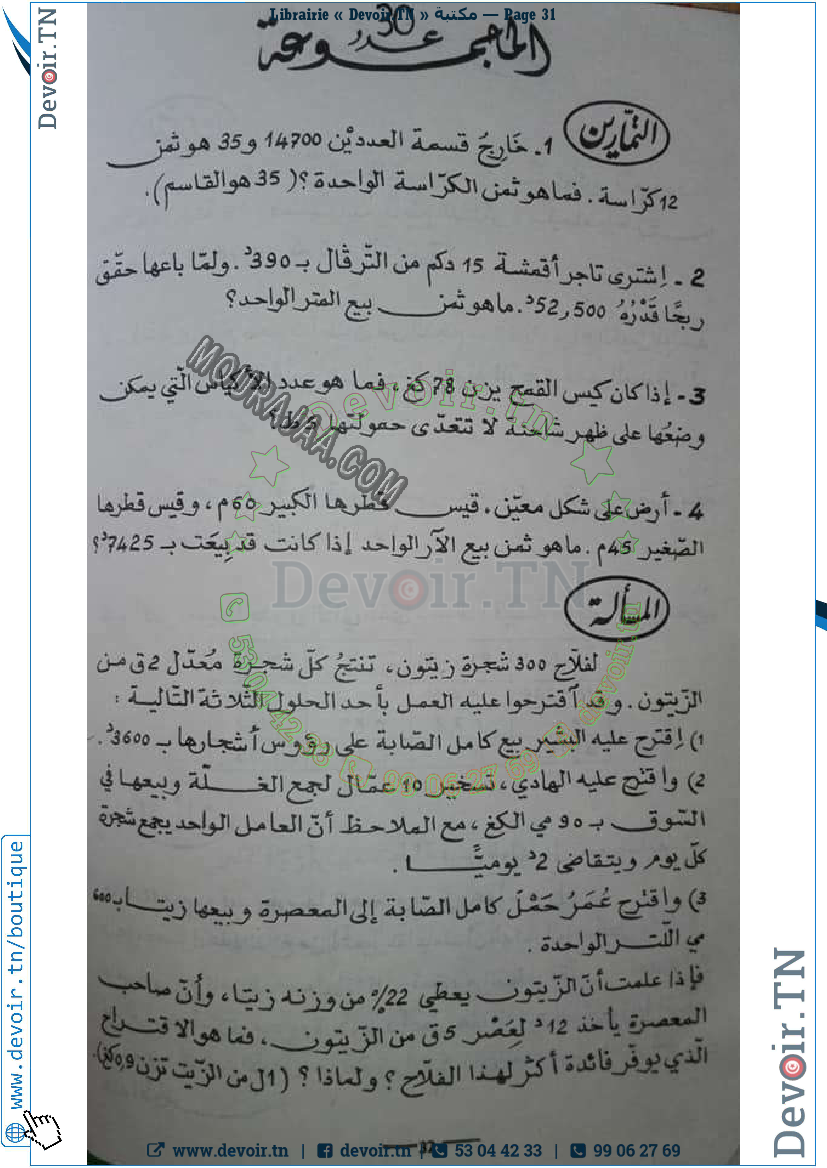 Librairie « Devoir.TN » مكتبة — Page 31
المجموعة عدد 30
التمارين
1. خَارِجُ قسمة العدديْن 14700 و 35 هو ثمن
12 كرّاسة. فما هو ثمن الكرّاسة الواحدة؟ (35 هو القاسم).
2 - اِشترى تاجر أقمشة 15 دكم من التّرڤال بـ 390د. ولمّا باعها حقّق
ربحًا قَدْرُهُ 52,500د. ما هو ثمن بيع المتر الواحد؟
3 - إذا كان كيس القمح يزن 78 كغ، فما هو عدد الأكياس الّتي يمكن
وضعُها على ظهر شاحنة لا تتعدّى حمولتها 5 ط؟
4 - أرض على شكل معيّن. قيس قطرها الكبير 60 م، وقيس قطرها
الصّغير 45 م. ما هو ثمن بيع الآر الواحد إذا كانت قد بِيعَت بـ 7425د؟
المسألة
لفلاّح 300 شجرة زيتون، تنتجُ كلّ شجرة مُعدّل 2 ق من
الزّيتون. وقد اَقترحوا عليه العمل بأحد الحلول الثّلاثة التّالية :
1) اِقترح عليه البشير بيع كامل الصّابة على رؤوس أشجارها بـ 3600د.
2) واقترح عليه الهادي، تسخير 10 عمّال لجمع الغلّة وبيعها في
السّوق بـ 90 مي الكغ، مع الملاحظ أنّ العامل الواحد يجمع شجرة
كلّ يوم ويتقاضى 2د يوميًّا.
3) واقترح عُمَرُ حَمْلَ كامل الصّابة إلى المعصرة وبيعها زيتا بـ 600
مي اللّتر الواحدة.
فإذا علمت أنّ الزّيتون يعطي 22% من وزنه زيتا، وأنّ صاحب
المعصرة يأخذ 12د لِعَصْر 5 ق من الزّيتون، فما هو الاقتراح
الّذي يوفّر فائدة أكثر لهذا الفلاّح؟ ولماذا؟ (1ل من الزّيت تزن 0,9 كغ).
32
MOURAJAA.COM
Devoir.tn
Devoir.TN
53 04 42 33
99 06 27 69
devoir.tn
Devoir.TN
www.devoir.tn/boutique
Devoir.TN
www.devoir.tn | devoir.tn | 53 04 42 33 | 99 06 27 69